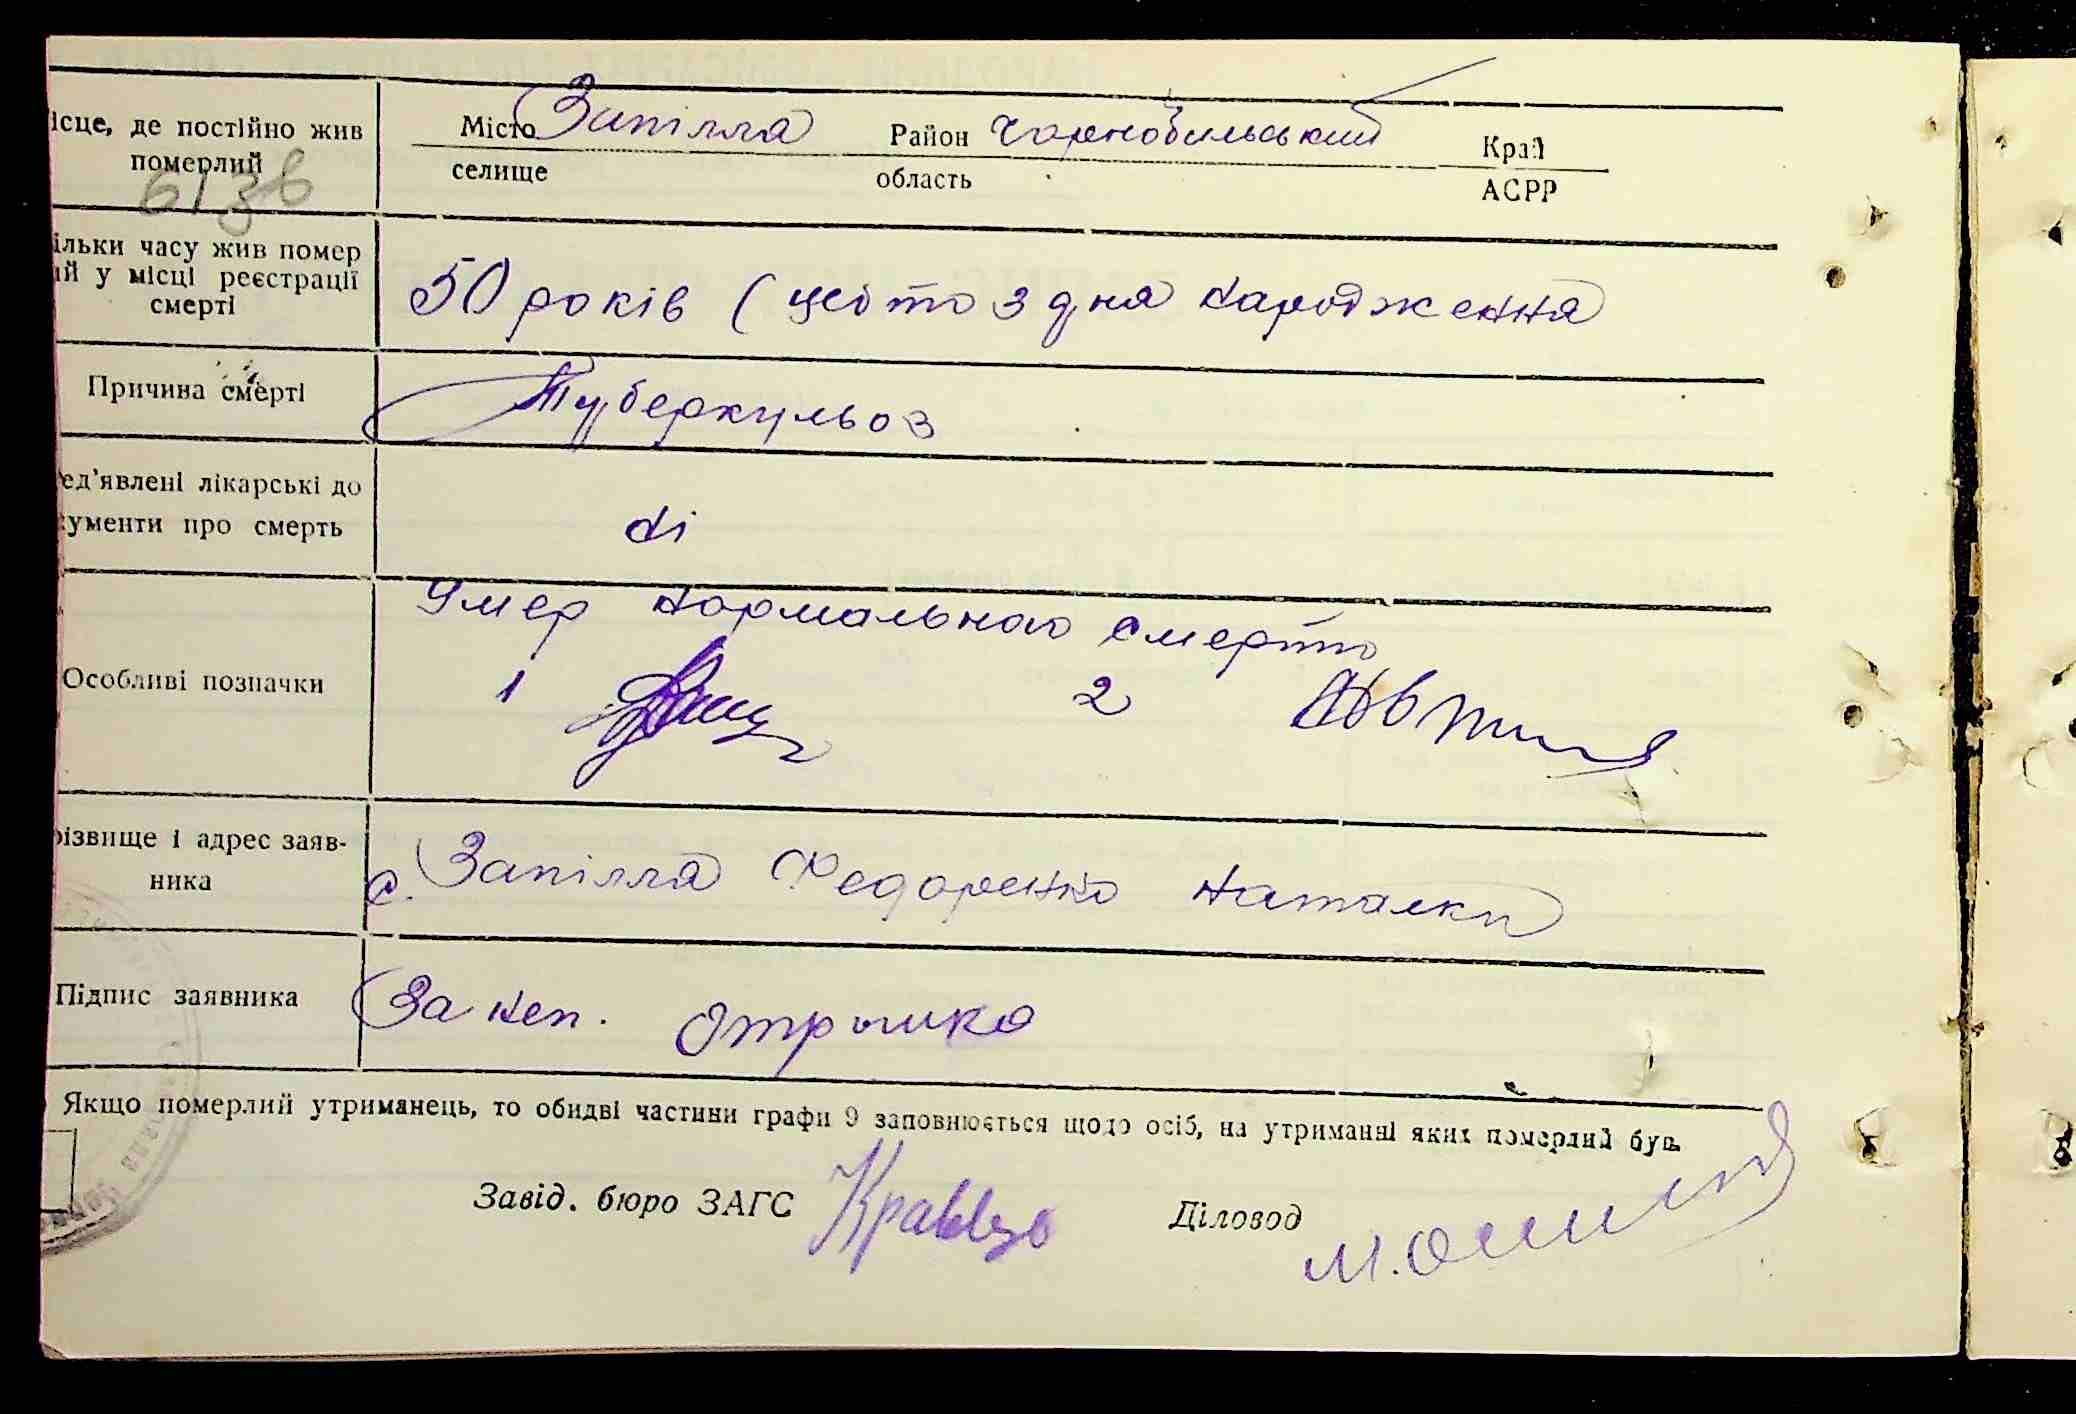 ісце, де постійно жив
померлий
613в
Місто Запілля Район Чорнобильський Край
селище область АСРР
ільки часу жив помер
ий у місці реєстрації
смерті
50 років (цебто з дня народження
Причина смерті
Туберкульоз
ед'явлені лікарські до
кументи про смерть
ні
Особливі позначки
Умер нормальною смертю
1 2
різвище і адрес заяв-
ника
с. Запілля Федоренко Наталки
Підпис заявника
За неп. Отрышко
Якщо померлий утриманець, то обидві частини графи 9 заповнюється щодо осіб, на утриманні яких померлий був.
Завід. бюро ЗАГС Кравець Діловод